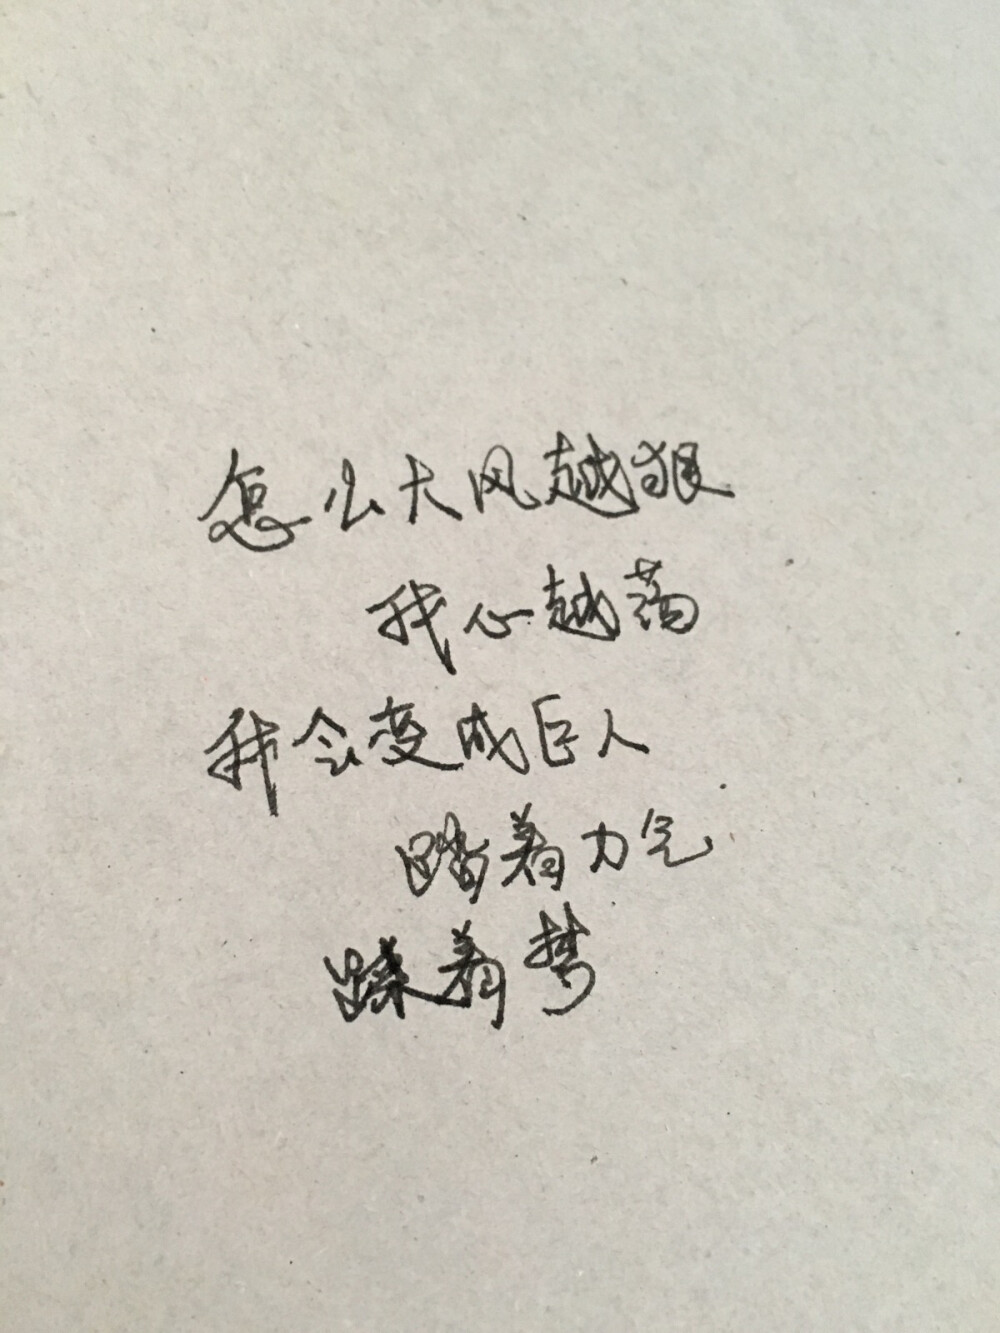 怎么大风越狠
我心越荡
我会变成巨人
踏着力气
踩着梦